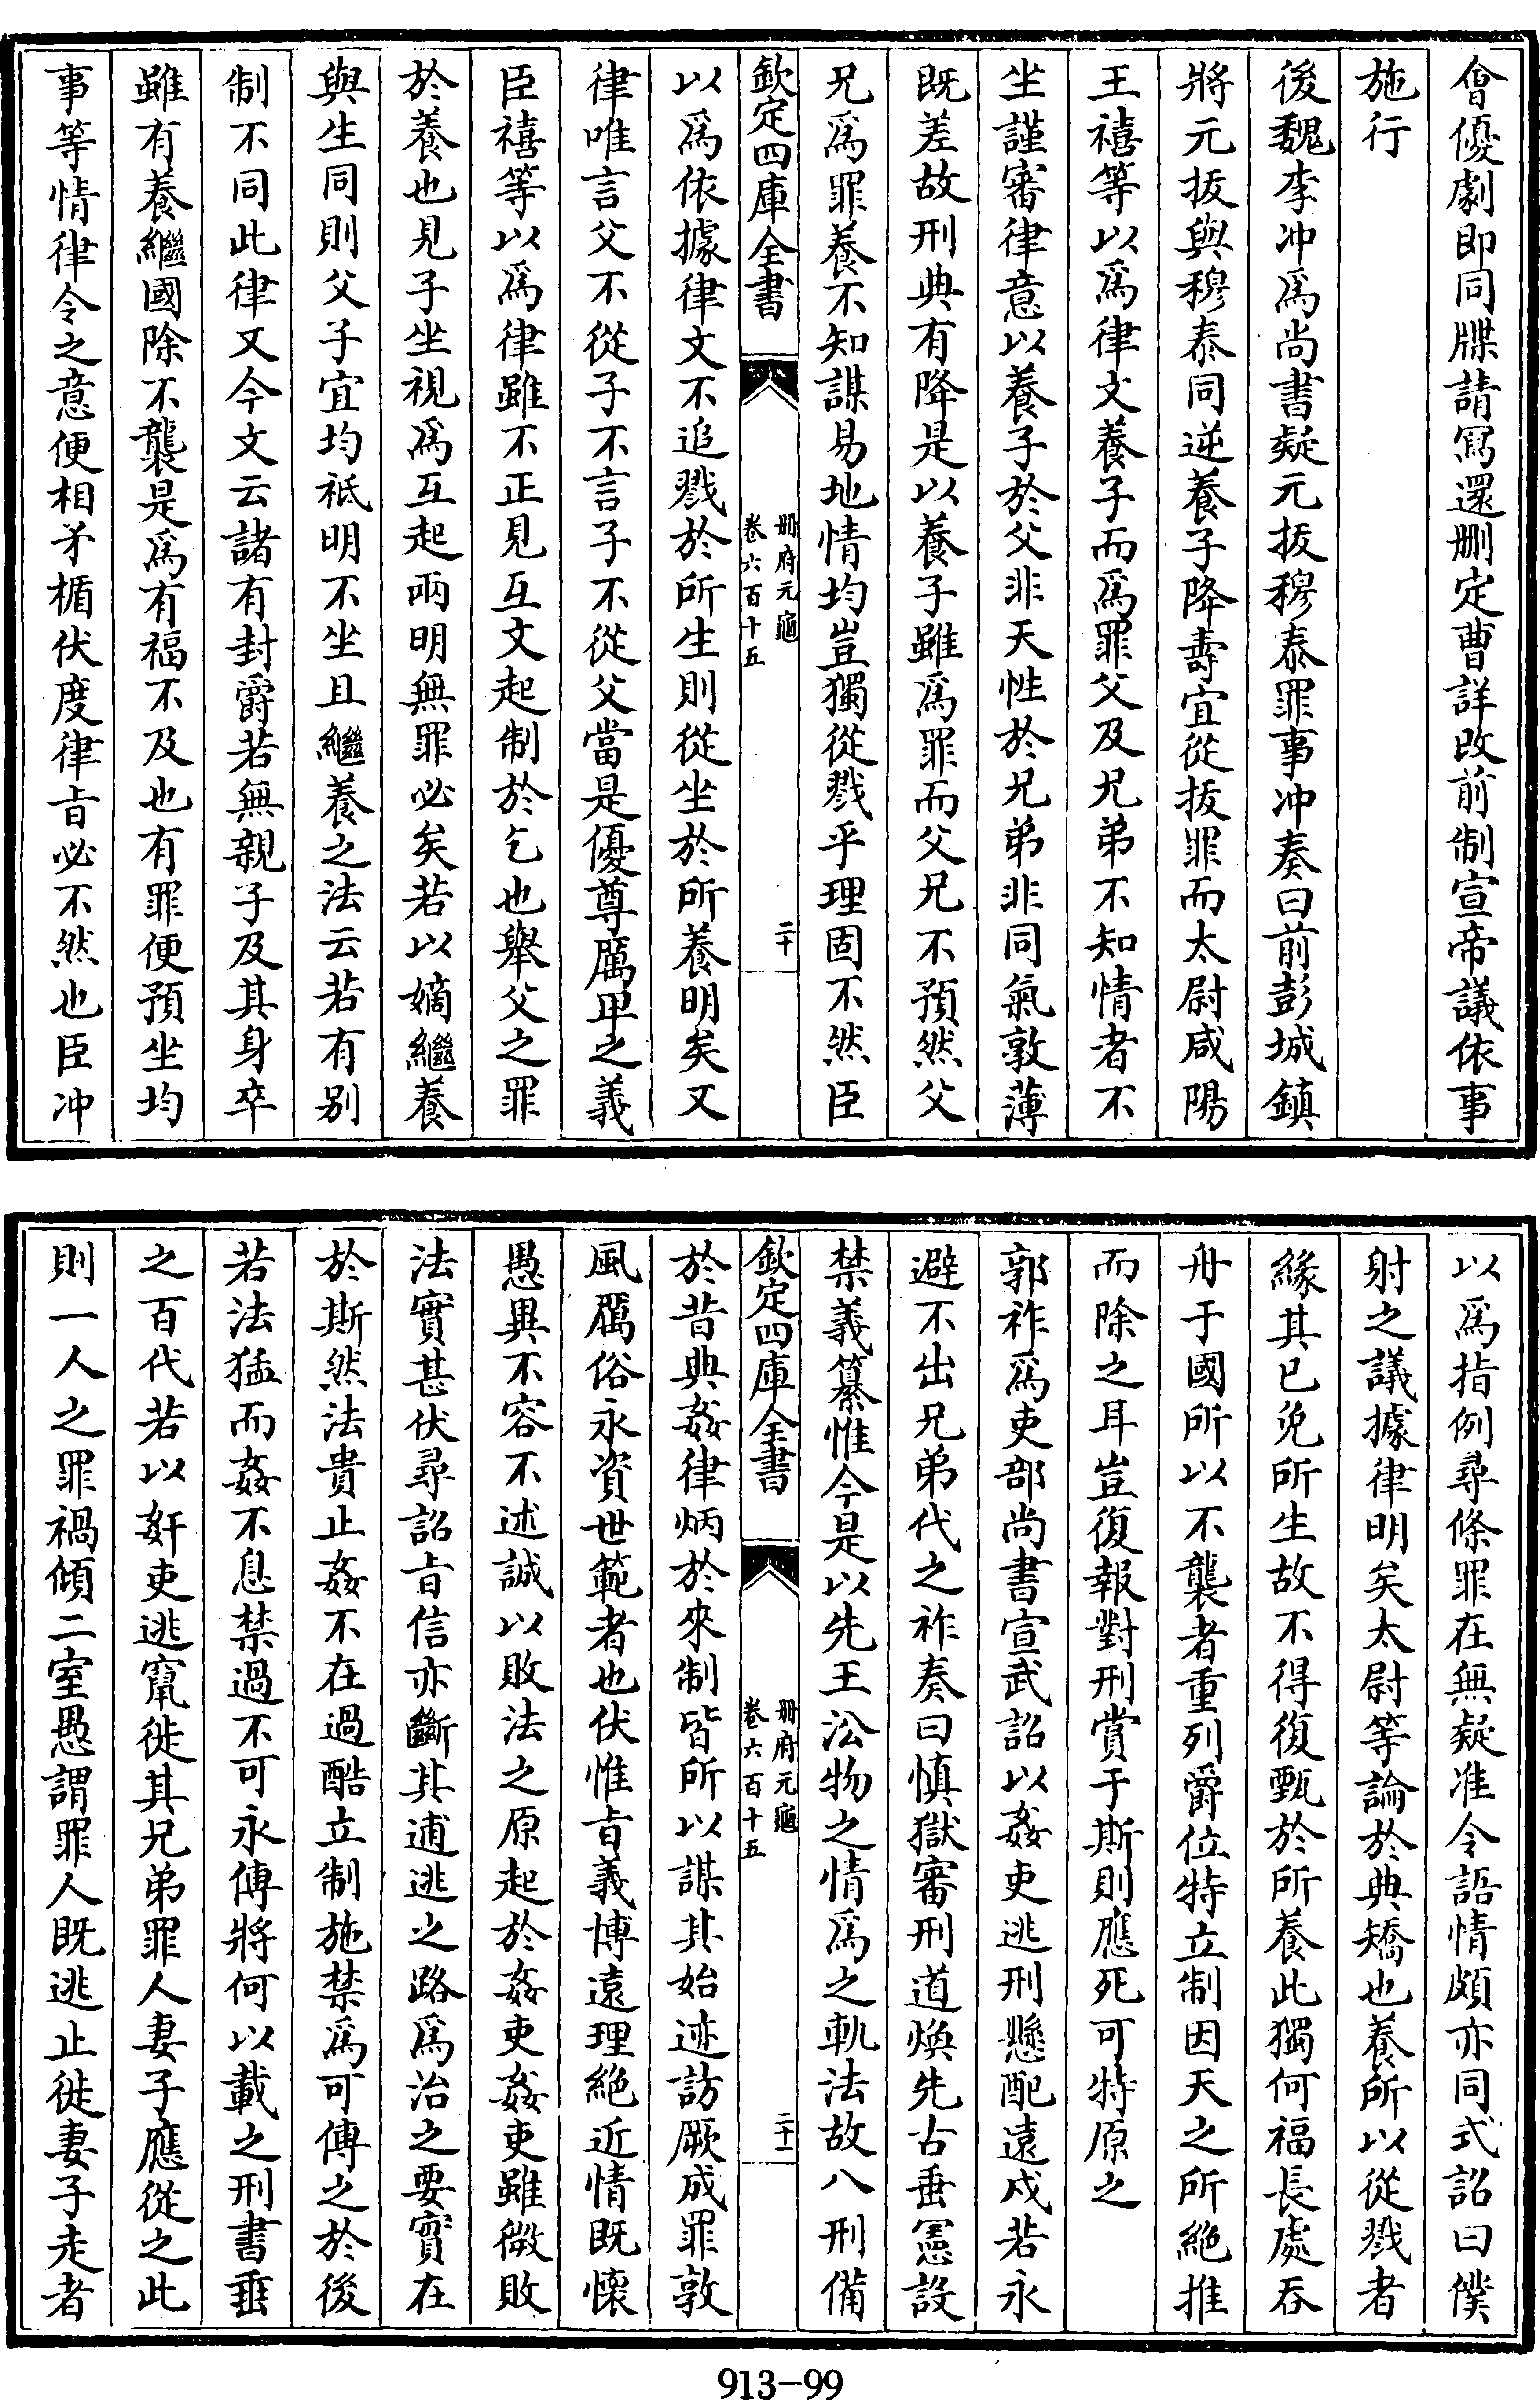 會優劇即同牒請寫還刪定曹詳改前制宣帝議依事
施行
後魏李冲爲尚書疑元拔穆泰罪事冲奏曰前彭城鎮
將元拔與穆泰同逆養子降壽宜從拔罪而太尉咸陽
王禧等以爲律文養子而爲罪父及兄弟不知情者不
坐謹審律意以養子於父非天性於兄弟非同氣敦薄
既差故刑典有降是以養子雖爲罪而父兄不預然父
兄爲罪養不知謀易地情均豈獨從戮乎理固不然臣
欽定四庫全書
册府元龜
卷六百十五
二十
以爲依據律文不追戮於所生則從坐於所養明矣又
律唯言父不從子不言子不從父當是優尊厲卑之義
臣禧等以爲律雖不正見互文起制於乞也舉父之罪
於養也見子坐視爲互起兩明無罪必矣若以嫡繼養
與生同則父子宜均祗明不坐且繼養之法云若有别
制不同此律又今文云諸有封爵若無親子及其身卒
雖有養繼國除不襲是爲有福不及也有罪便預坐均
事等情律令之意便相矛楯伏度律㫖必不然也臣冲
以爲指例尋條罪在無疑准令語情頗亦同式詔曰僕
射之議據律明矣太尉等論於典矯也養所以從戮者
緣其已免所生故不得復甄於所養此獨何福長處吞
舟于國所以不襲者重列爵位特立制因天之所絶推
而除之耳豈復報對刑賞于斯則應死可特原之
郭祚爲吏部尚書宣武詔以姦吏逃刑懸配遠戍若永
避不出兄弟代之祚奏曰慎獄審刑道煥先古垂憲設
禁義纂惟今是以先王㳂物之情爲之軌法故八刑備
欽定四庫全書
册府元龜
卷六百十五
二十一
於昔典姦律炳於來制皆所以謀其始迹訪厥成罪敦
風厲俗永資世範者也伏惟㫖義博遠理絶近情既懷
愚異不容不述誠以敗法之原起於姦吏姦吏雖微敗
法實甚伏尋詔㫖信亦斷其逋逃之路爲治之要實在
於斯然法貴止姦不在過酷立制施禁爲可傳之於後
若法猛而姦不息禁過不可永傳將何以載之刑書垂
之百代若以奸吏逃竄徙其兄弟罪人妻子應從之此
則一人之罪禍傾二室愚謂罪人既逃止徙妻子走者
913-99